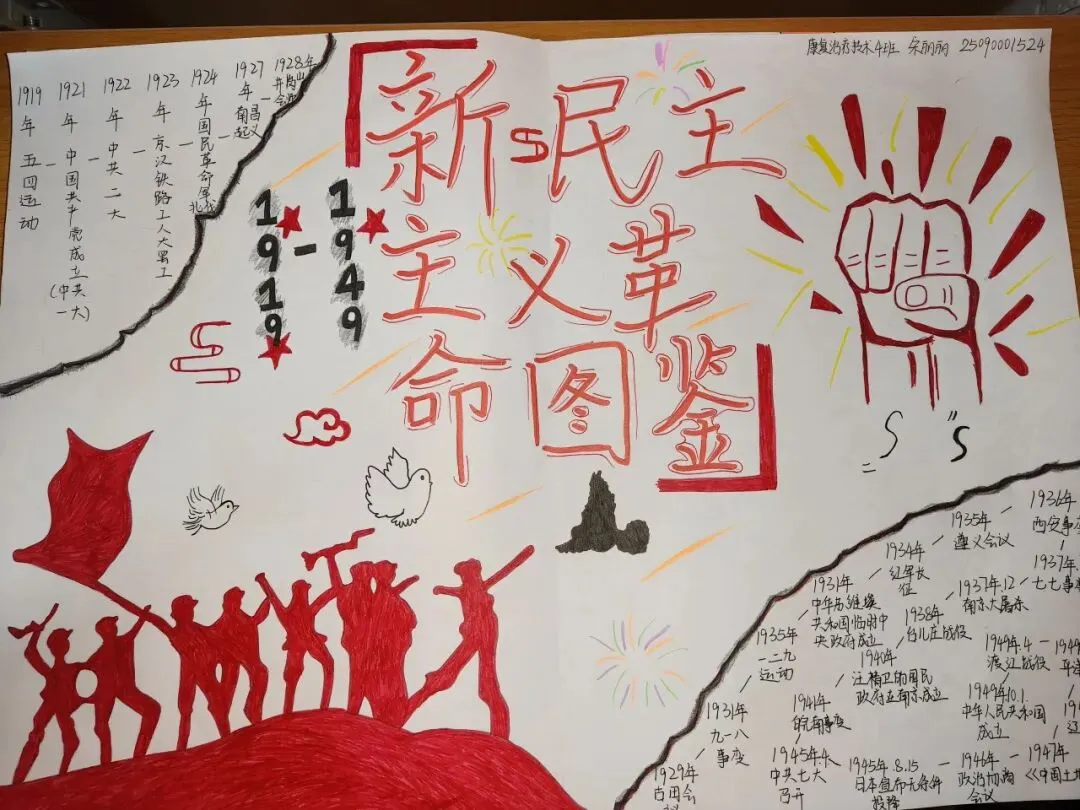 康复治疗技术4班 宋丽丽 25090001524
新民主
主义革
命图鉴
1919-1949
1919年 五四运动
1921年 中国共产党成立(中共一大)
1922年 中共二大
1923年 京汉铁路工人大罢工
1924年 国民革命军北伐
1927年 南昌起义
1928年
1929年
古田会
1931年
九一八
事变
1935年
一二九
运动
1931年
中华苏维埃
共和国临时中
央政府成立
1934年
红军长
征
1935年
遵义会议
1936年
西安事
1937年
七七事
1937年.12
南京大屠杀
1938年
台儿庄战役
1940年
汪精卫的国民
政府在南京成立
1941年
皖南事变
1945年.4
中共七大
召开
1945年 8.15
日本宣布无条件
投降
1946年
政治协商
会议
1947年
《中国土地
1949年.4
渡江战役
1949年.10.1
中华人民共和国
成立